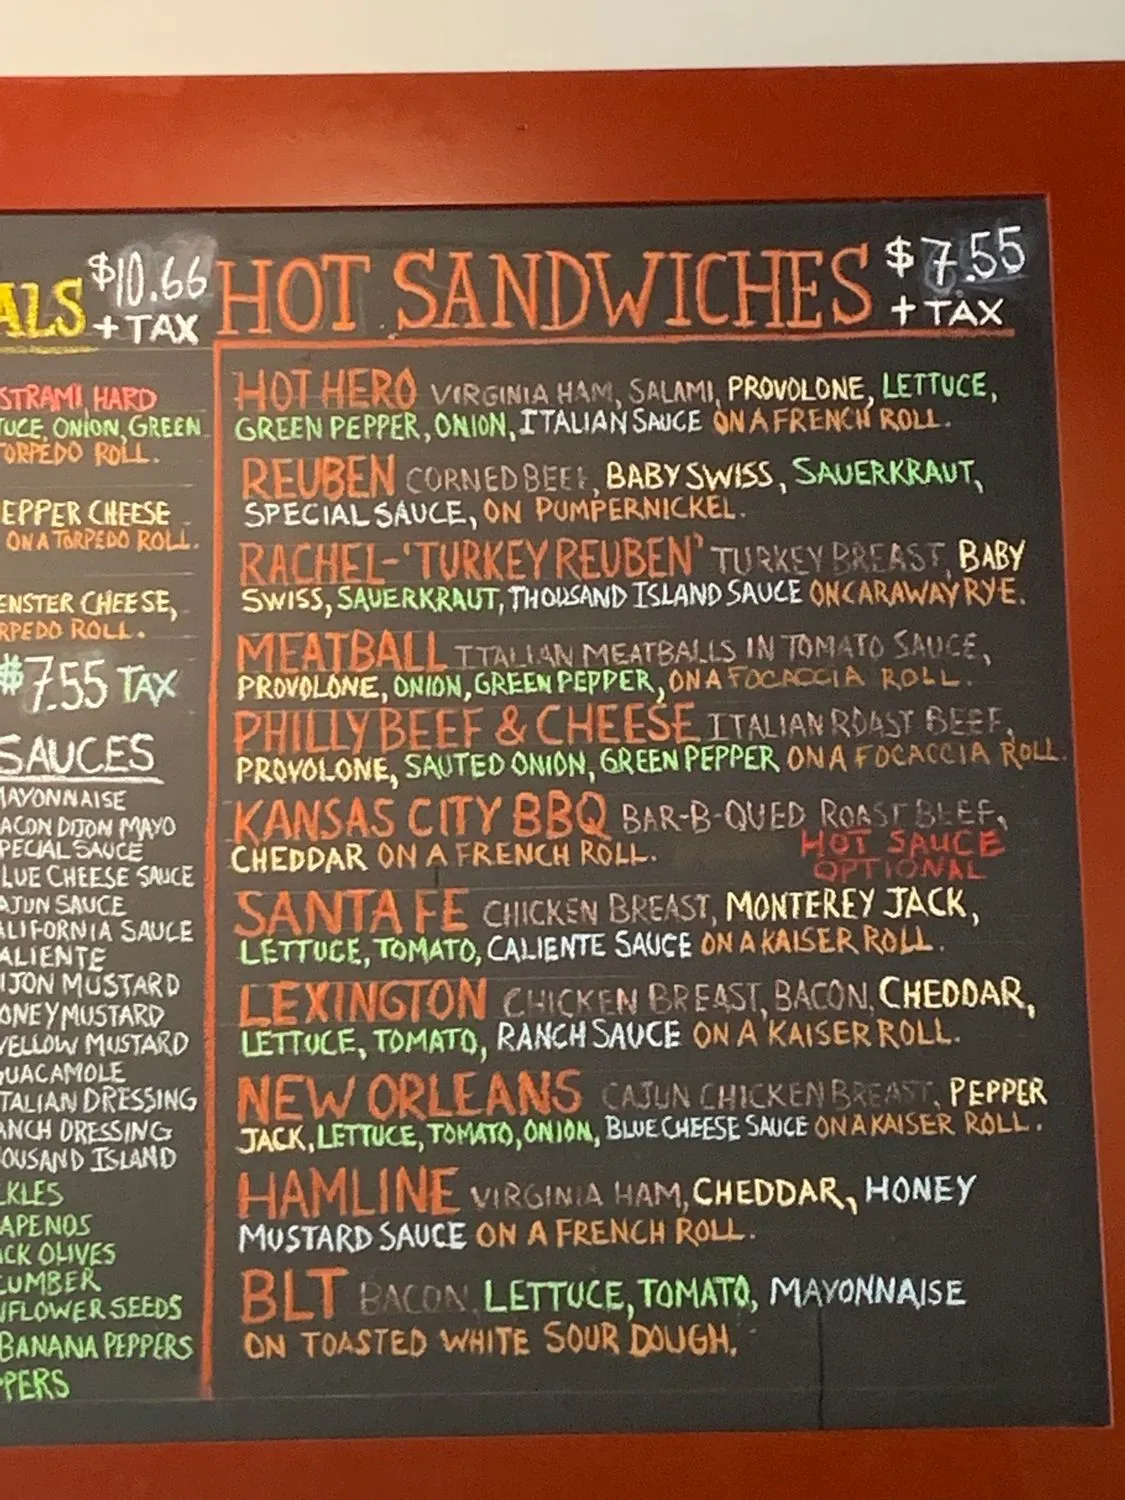 ALS $10.66
+ TAX
STRAMI, HARD
TUCE, ONION, GREEN
TORPEDO ROLL.
EPPER CHEESE
ON A TORPEDO ROLL.
ENSTER CHEESE,
RPEDO ROLL.
$7.55 TAX
SAUCES
MAYONNAISE
ACON DIJON MAYO
PECIAL SAUCE
LUE CHEESE SAUCE
AJUN SAUCE
ALIFORNIA SAUCE
ALIENTE
IJON MUSTARD
ONEY MUSTARD
YELLOW MUSTARD
GUACAMOLE
TALIAN DRESSING
ANCH DRESSING
OUSAND ISLAND
CKLES
APENOS
ACK OLIVES
CUMBER
NFLOWER SEEDS
BANANA PEPPERS
PPERS
HOT SANDWICHES $7.55
+ TAX
HOT HERO VIRGINIA HAM, SALAMI, PROVOLONE, LETTUCE,
GREEN PEPPER, ONION, ITALIAN SAUCE ON A FRENCH ROLL.
REUBEN CORNED BEEF, BABY SWISS, SAUERKRAUT,
SPECIAL SAUCE, ON PUMPERNICKEL.
RACHEL-'TURKEY REUBEN' TURKEY BREAST, BABY
SWISS, SAUERKRAUT, THOUSAND ISLAND SAUCE ON CARAWAY RYE.
MEATBALL ITALIAN MEATBALLS IN TOMATO SAUCE,
PROVOLONE, ONION, GREEN PEPPER, ON A FOCACCIA ROLL.
PHILLY BEEF & CHEESE ITALIAN ROAST BEEF,
PROVOLONE, SAUTED ONION, GREEN PEPPER ON A FOCACCIA ROLL.
KANSAS CITY BBQ BAR-B-QUED ROAST BEEF,
CHEDDAR ON A FRENCH ROLL. HOT SAUCE
OPTIONAL
SANTA FE CHICKEN BREAST, MONTEREY JACK,
LETTUCE, TOMATO, CALIENTE SAUCE ON A KAISER ROLL.
LEXINGTON CHICKEN BREAST, BACON, CHEDDAR,
LETTUCE, TOMATO, RANCH SAUCE ON A KAISER ROLL.
NEW ORLEANS CAJUN CHICKEN BREAST, PEPPER
JACK, LETTUCE, TOMATO, ONION, BLUE CHEESE SAUCE ON A KAISER ROLL.
HAMLINE VIRGINIA HAM, CHEDDAR, HONEY
MUSTARD SAUCE ON A FRENCH ROLL.
BLT BACON, LETTUCE, TOMATO, MAYONNAISE
ON TOASTED WHITE SOUR DOUGH.